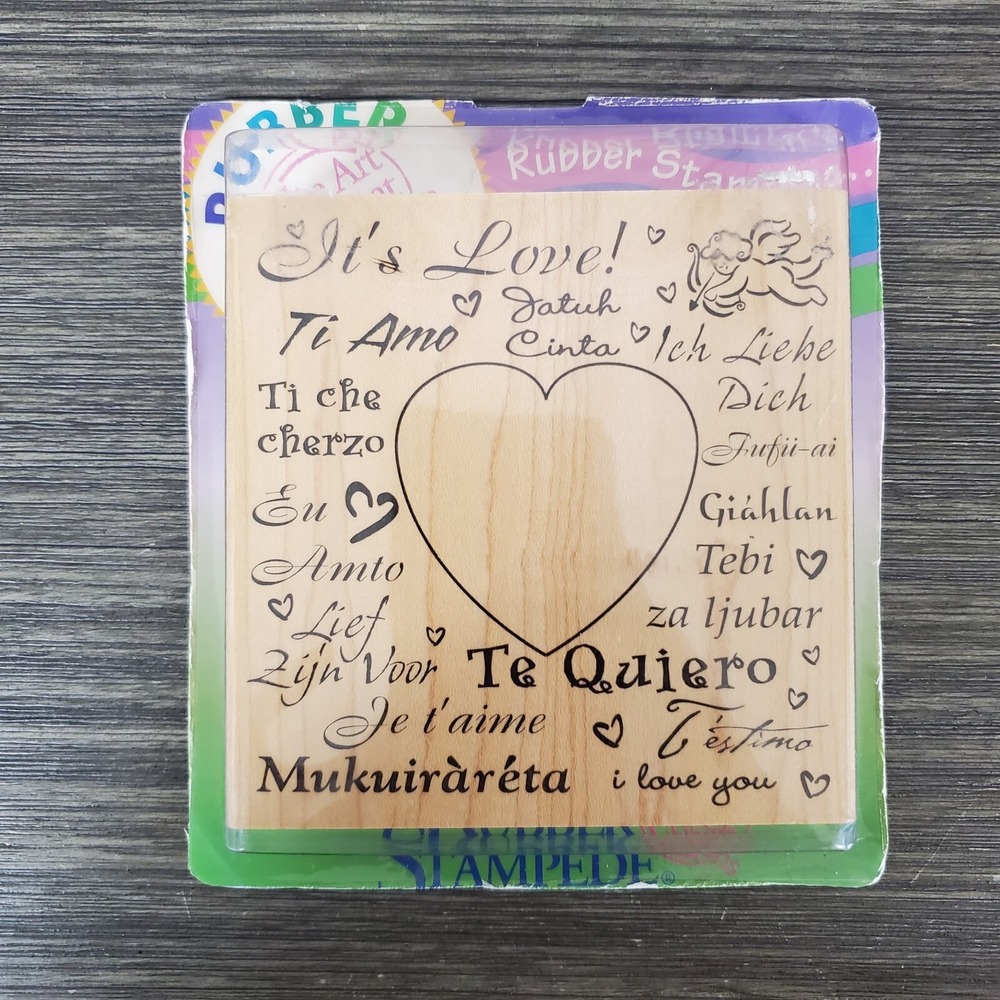 RUBBER
Art
Rubber Stam
It's Love!
Jatuh
Cinta
Ti Amo
Ich Liebe
Dich
Ti che
cherzo
Fufü-ai
Eu
Giáhlan
Amto
Tebi
Lief
za ljubar
Zijn Voor
Te Quiero
Je t'aime
T'éstimo
Mukuiràréta
i love you
RUBBER
STAMPEDE®